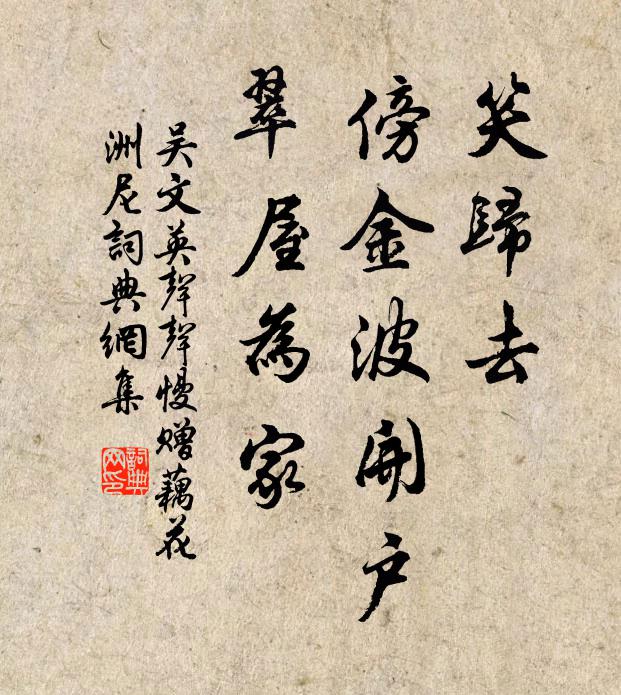 笑歸去
傍金波開戶
翠屋為家
吳文英聲聲慢贈藕花
洲尼詞典網集
詞典
网印